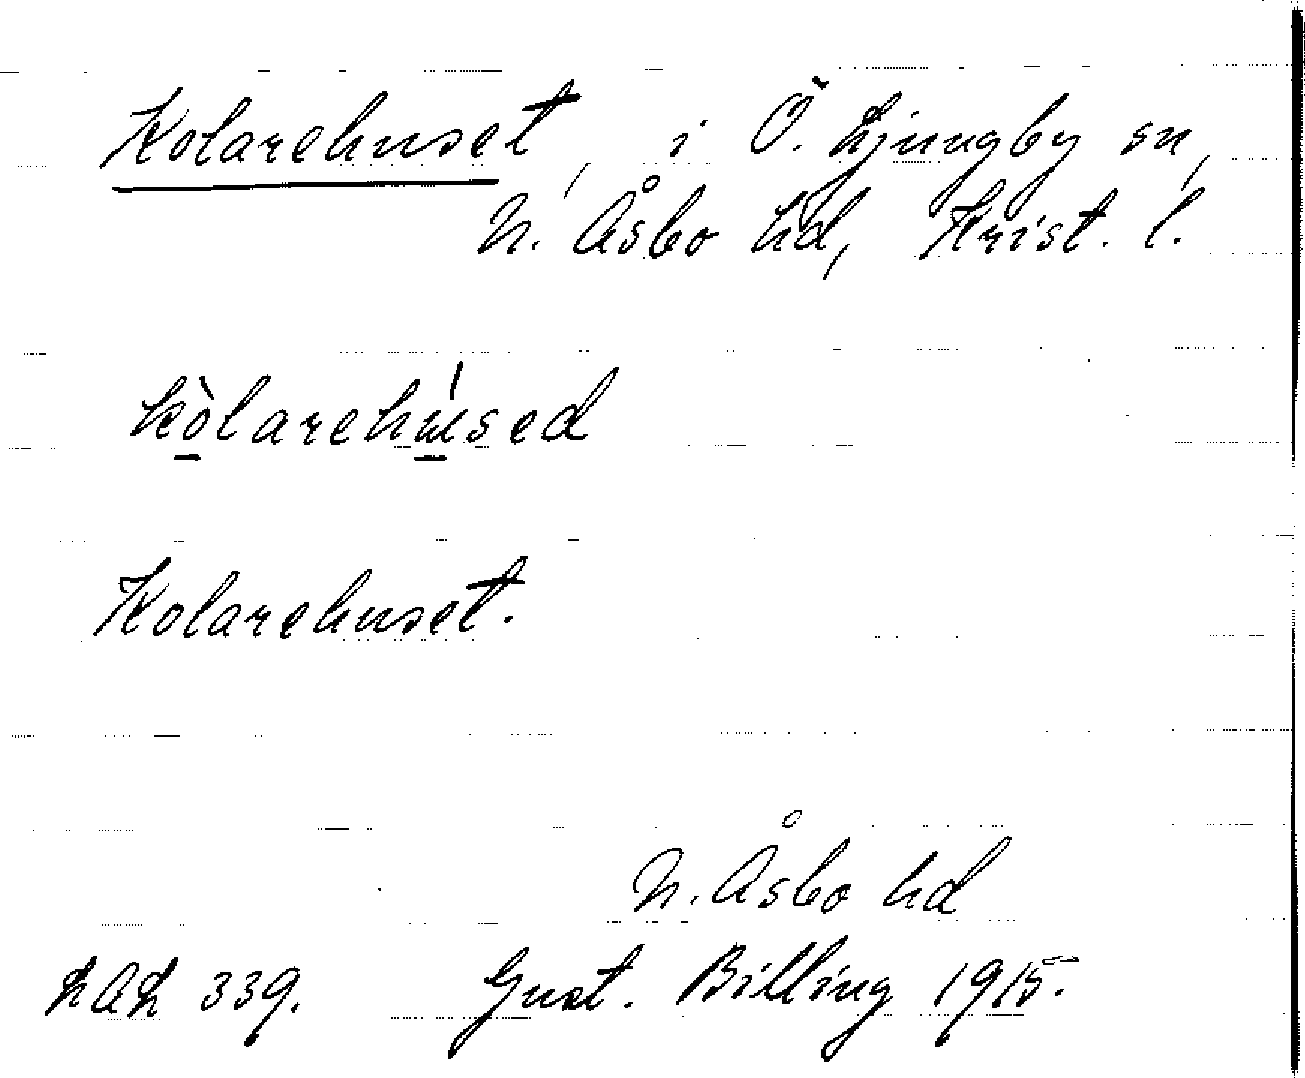 Kolarehuset, i Ö. Ljungby sn,
N. Åsbo hd, Krist. l.
kòlarehúsed
Kolarehuset.
N. Åsbo hd
LAL 339. Gust. Billing 1915.